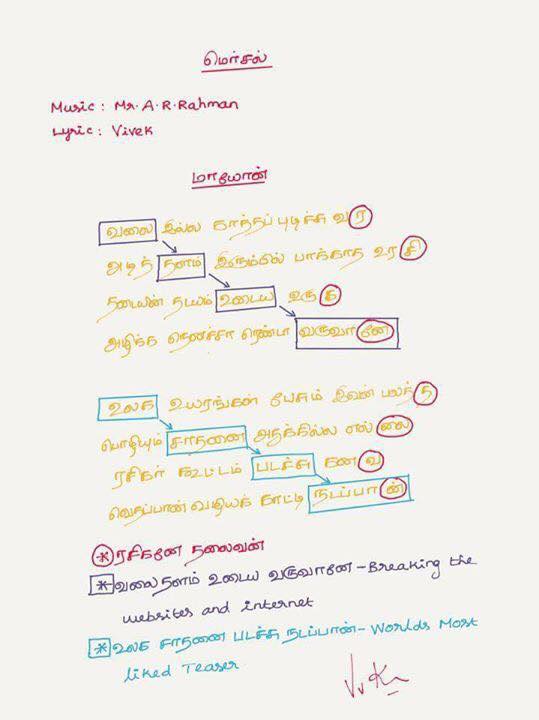 மெர்சல்
Music : Mr. A. R. Rahman
Lyric : Vivek
மாயோன்
வலை இல்ல காத்தப் புடிச்சு வர
அடித் தளம் இரும்பில் பாக்காத உரசி
தடையின் நயம் உடைய உருக
அழிக்க நெனச்சா ரெண்டா வருவானே
உலக உயரங்கள் பேசும் இவன் பலத்த
பொழியும் சாதனை அதுக்கில்ல எல்லை
ரசிகர் கூட்டம் படச்சு கனவ
வெதப்பான் வழியக் காட்டி நடப்பான்
* ரசிகனே தலைவன்
* வலை தளம் உடைய வருவானே - Breaking the
websites and internet
* உலக சாதனை படச்சு நடப்பான் - Worlds Most
liked Teaser